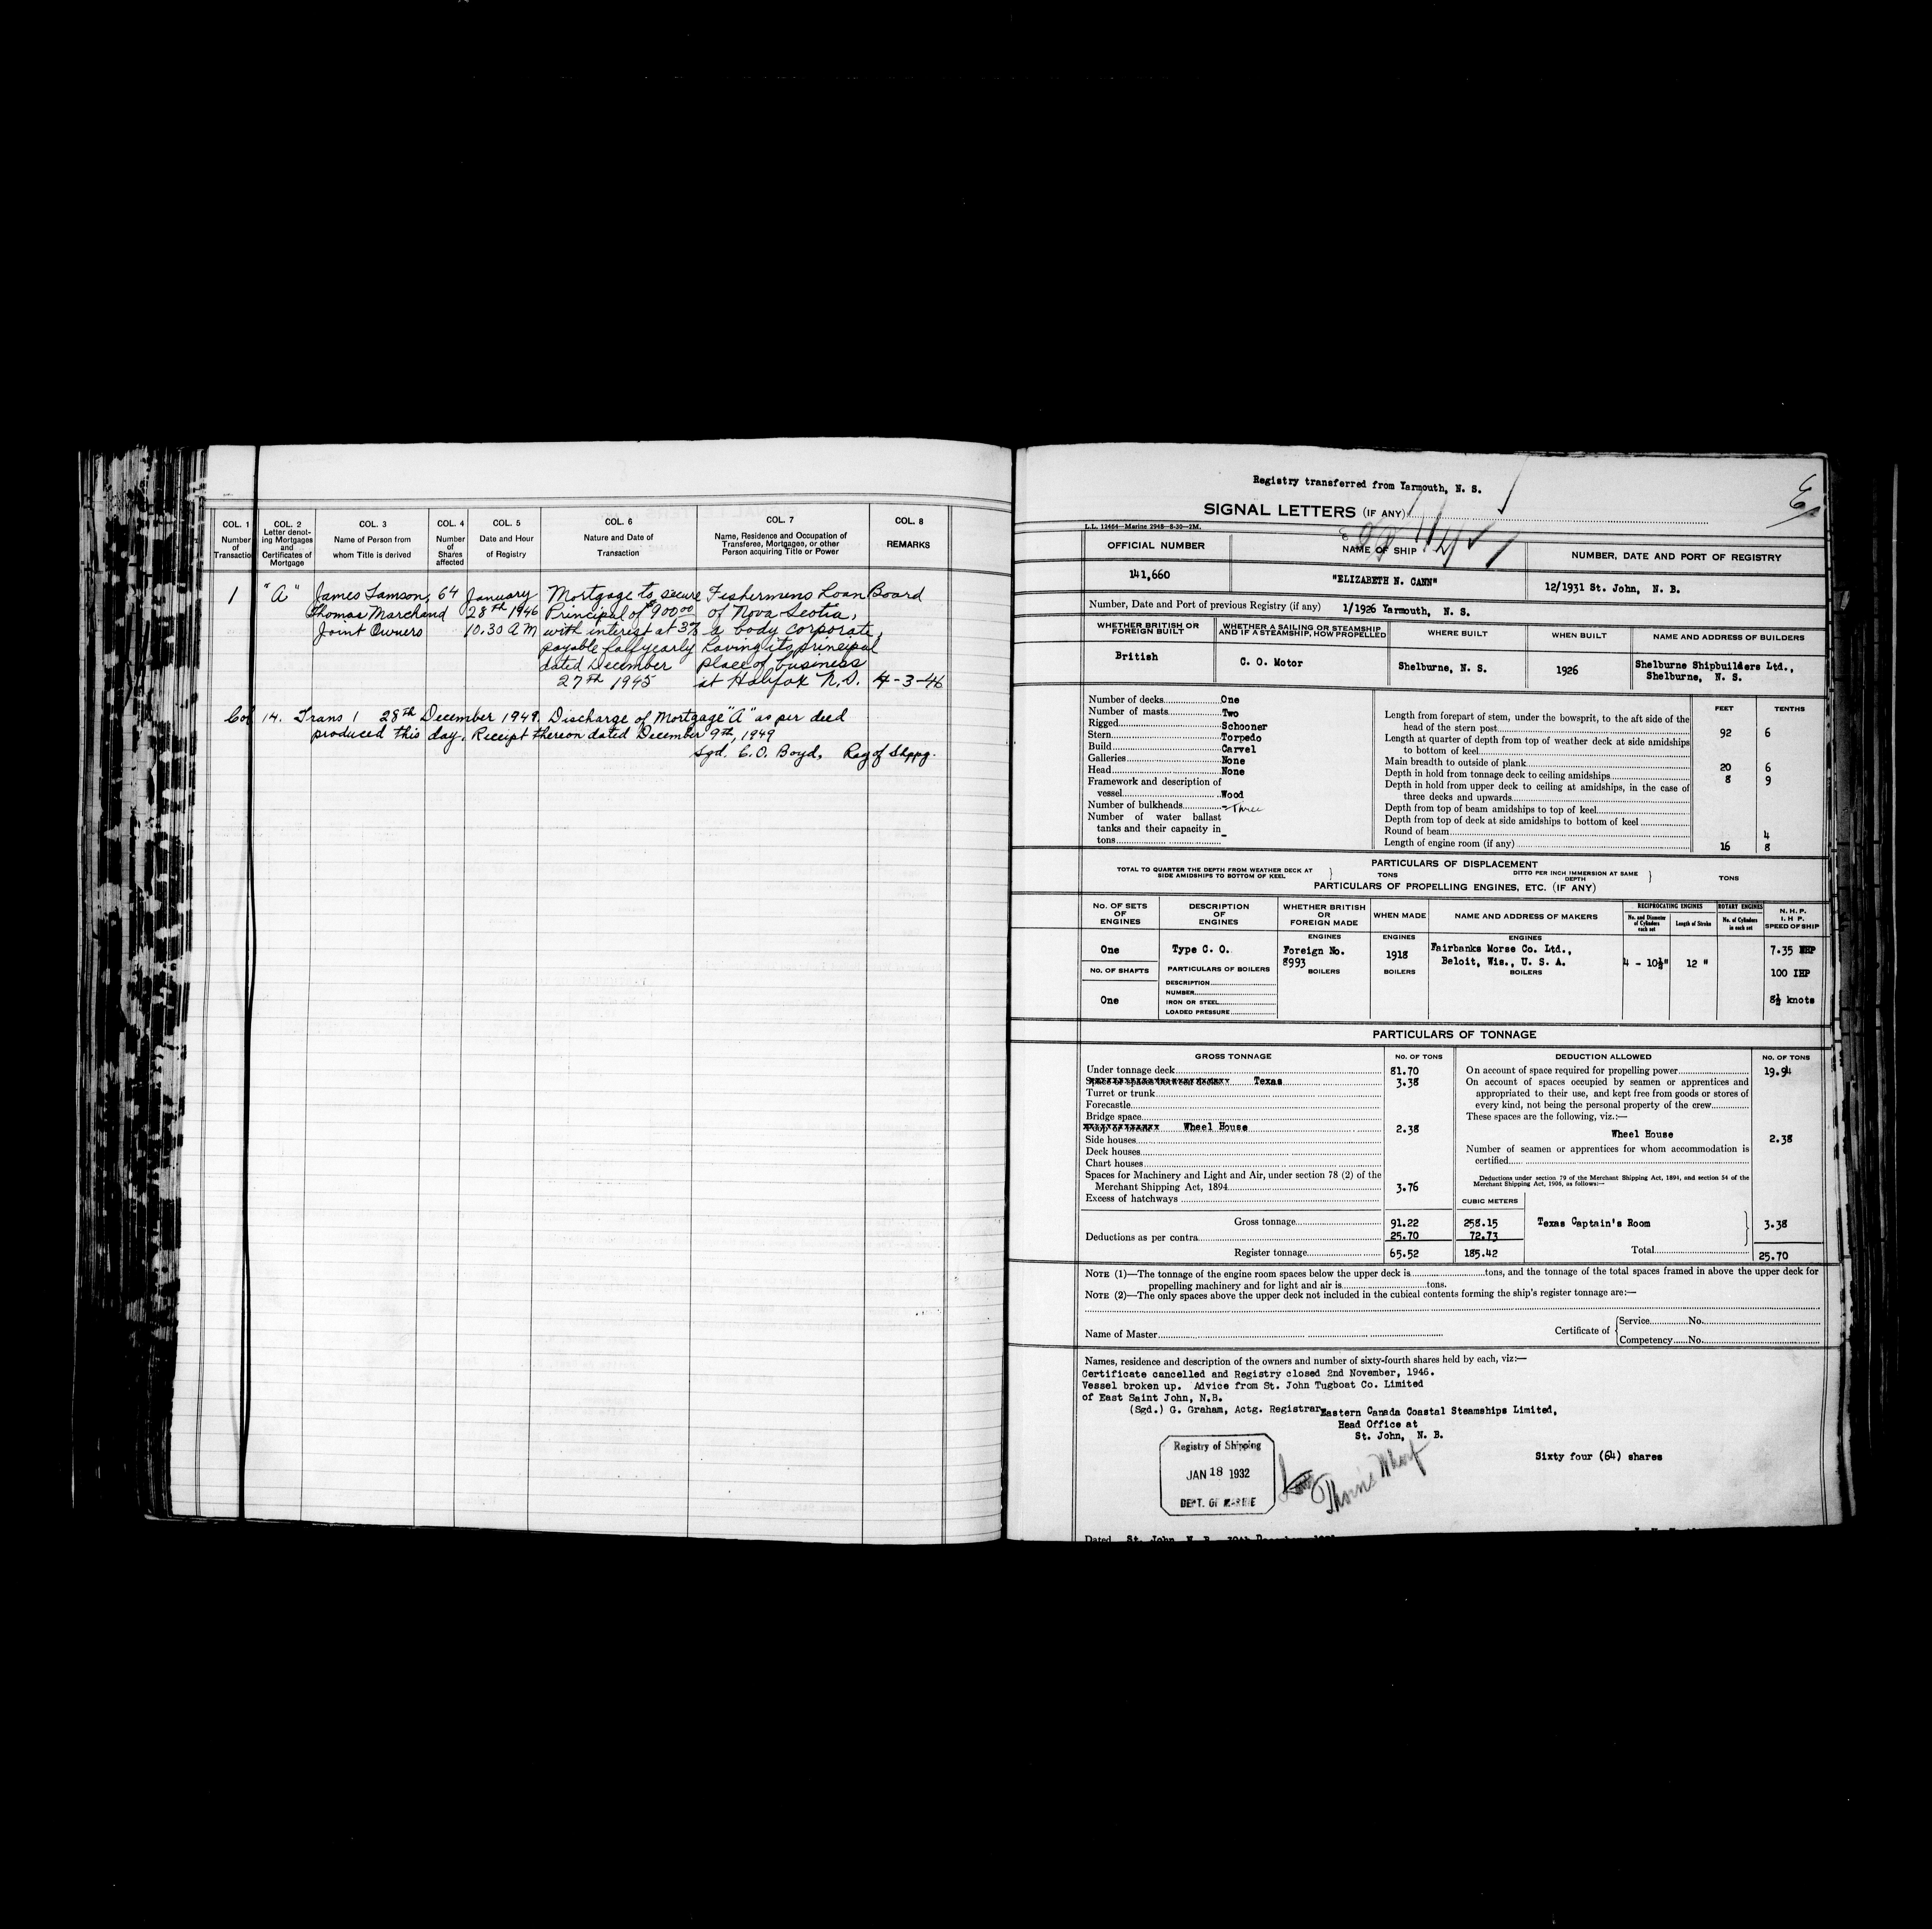 COL. 1
Number
of
Transaction
COL. 2
Letter denot-
ing Mortgages
and
Certificates of
Mortgage
COL. 3
Name of Person from
whom Title is derived
COL. 4
Number
of
Shares
affected
COL. 5
Date and Hour
of Registry
COL. 6
Nature and Date of
Transaction
COL. 7
Name, Residence and Occupation of
Transferee, Mortgages, or other
Person acquiring Title or Power
COL. 8
REMARKS
1 "A" James Samson, 64 January Mortgage to secure Fishermens Loan Board
Thomas Marchand 28th 1946 Principal of $900 00 of Nova Scotia,
Joint Owners 10.30 A M with interest at 3% a body corporate,
payable half yearly having its principal
dated December place of business
27th 1945 at Halifax N.S. 4-3-46
Col 14. Trans 1 28th December 1949. Discharge of Mortgage "A" as per deed
produced this day. Receipt thereon dated December 9th, 1949
Sgd. C.O. Boyd, Reg of Shppg.
Registry transferred from Yarmouth, N. S.
SIGNAL LETTERS (IF ANY)
L.L. 12464—Marine 2948—8-30—2M.
OFFICIAL NUMBER NAME OF SHIP NUMBER, DATE AND PORT OF REGISTRY
141,660 "ELIZABETH N. CANN" 12/1931 St. John, N. B.
Number, Date and Port of previous Registry (if any) 1/1926 Yarmouth, N. S.
WHETHER BRITISH OR
FOREIGN BUILT
WHETHER A SAILING OR STEAMSHIP
AND IF A STEAMSHIP, HOW PROPELLED
WHERE BUILT
WHEN BUILT
NAME AND ADDRESS OF BUILDERS
British C. O. Motor Shelburne, N. S. 1926 Shelburne Shipbuilders Ltd.,
Shelburne, N. S.
Number of decks One
Number of masts Two
Rigged Schooner
Stern Torpedo
Build Carvel
Galleries None
Head None
Framework and description of
vessel Wood
Number of bulkheads Three
Number of water ballast
tanks and their capacity in
tons -
FEET TENTHS
Length from forepart of stem, under the bowsprit, to the aft side of the
head of the stern post 92 6
Length at quarter of depth from top of weather deck at side amidships
to bottom of keel
Main breadth to outside of plank 20 6
Depth in hold from tonnage deck to ceiling amidships 8 9
Depth in hold from upper deck to ceiling at amidships, in the case of
three decks and upwards
Depth from top of beam amidships to top of keel
Depth from top of deck at side amidships to bottom of keel
Round of beam 4
Length of engine room (if any) 16 8
PARTICULARS OF DISPLACEMENT
TOTAL TO QUARTER THE DEPTH FROM WEATHER DECK AT
SIDE AMIDSHIPS TO BOTTOM OF KEEL
TONS
DITTO PER INCH IMMERSION AT SAME
DEPTH
TONS
PARTICULARS OF PROPELLING ENGINES, ETC. (IF ANY)
No. OF SETS
OF
ENGINES
DESCRIPTION
OF
ENGINES
WHETHER BRITISH
OR
FOREIGN MADE
WHEN MADE
NAME AND ADDRESS OF MAKERS
RECIPROCATING ENGINES
No. and Diameter
of Cylinders
each set
Length of Stroke
ROTARY ENGINES
No. of Cylinders
in each set
N. H. P.
I. H P.
SPEED OF SHIP
ENGINES ENGINES ENGINES
One Type C. O. Foreign No.
8993
1918 Fairbanks Morse Co. Ltd.,
Beloit, Wis., U. S. A.
4 - 10½" 12 "
7.35 NHP
100 IHP
8½ knots
NO. OF SHAFTS PARTICULARS OF BOILERS BOILERS BOILERS BOILERS
One
DESCRIPTION
NUMBER
IRON OR STEEL
LOADED PRESSURE
PARTICULARS OF TONNAGE
GROSS TONNAGE NO. OF TONS
Under tonnage deck 81.70
Space or spaces between decks Texas 3.38
Turret or trunk
Forecastle
Bridge space
Poop or break Wheel House 2.38
Side houses
Deck houses
Chart houses
Spaces for Machinery and Light and Air, under section 78 (2) of the
Merchant Shipping Act, 1894 3.76
Excess of hatchways
Gross tonnage 91.22 258.15
Deductions as per contra 25.70 72.73
Register tonnage 65.52 185.42
DEDUCTION ALLOWED NO. OF TONS
On account of space required for propelling power 19.94
On account of spaces occupied by seamen or apprentices and
appropriated to their use, and kept free from goods or stores of
every kind, not being the personal property of the crew
These spaces are the following, viz.:—
Wheel House 2.38
Number of seamen or apprentices for whom accommodation is
certified
Deductions under section 79 of the Merchant Shipping Act, 1894, and section 54 of the
Merchant Shipping Act, 1906, as follows:—
CUBIC METERS
Texas Captain's Room 3.38
Total 25.70
NOTE (1)—The tonnage of the engine room spaces below the upper deck is tons, and the tonnage of the total spaces framed in above the upper deck for
propelling machinery and for light and air is tons.
NOTE (2)—The only spaces above the upper deck not included in the cubical contents forming the ship's register tonnage are:—
Name of Master
Certificate of
Service No.
Competency No.
Names, residence and description of the owners and number of sixty-fourth shares held by each, viz:—
Certificate cancelled and Registry closed 2nd November, 1946.
Vessel broken up. Advice from St. John Tugboat Co. Limited
of East Saint John, N.B.
(Sgd.) G. Graham, Actg. Registrar
Eastern Canada Coastal Steamships Limited,
Head Office at
St. John, N. B.
Sixty four (64) shares
Registry of Shipping
JAN 18 1932
DEPT. OF MARINE
Thorn's Wharf
Dated St. John, N. B.